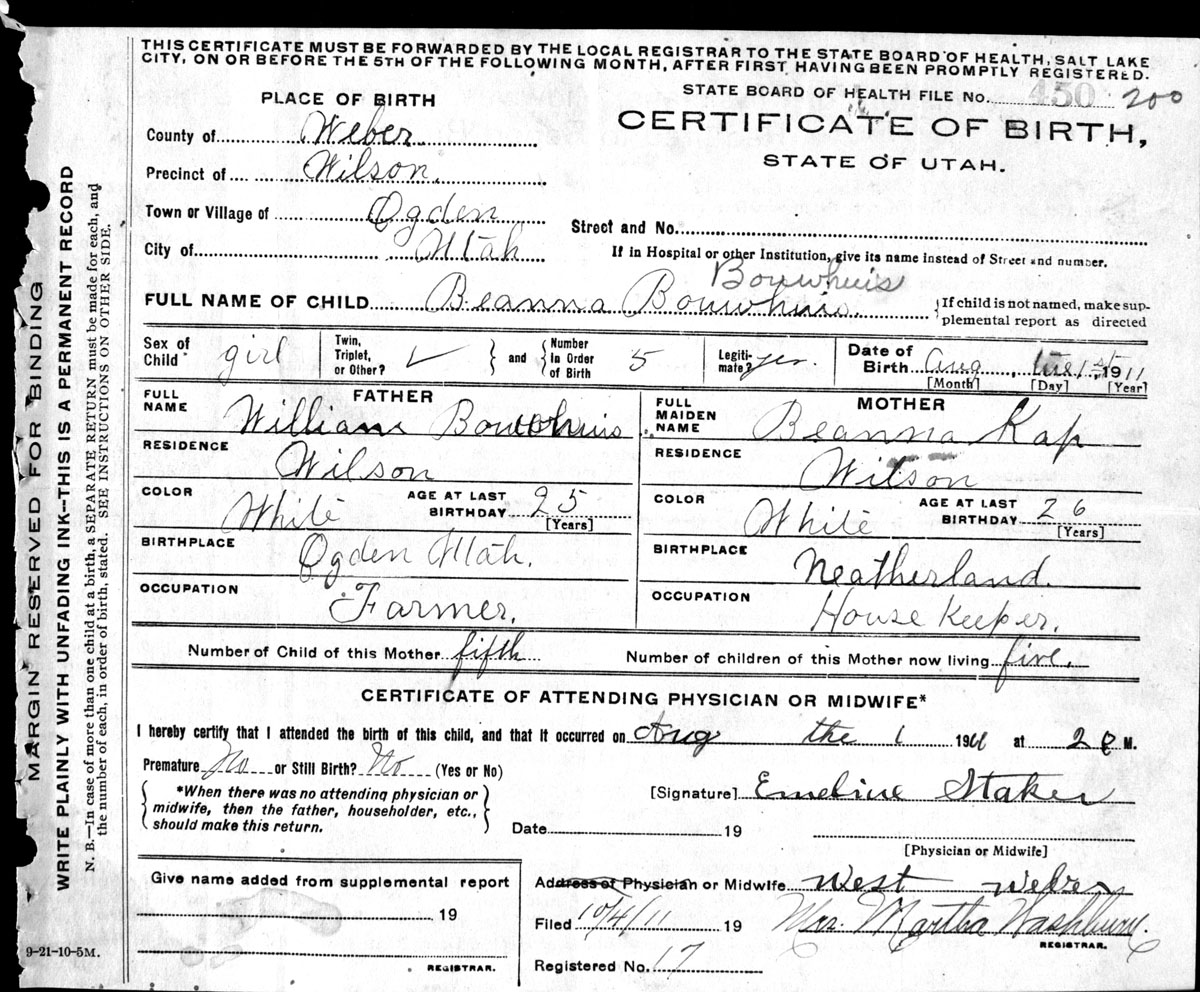 THIS CERTIFICATE MUST BE FORWARDED BY THE LOCAL REGISTRAR TO THE STATE BOARD OF HEALTH, SALT LAKE
CITY, ON OR BEFORE THE 5TH OF THE FOLLOWING MONTH, AFTER FIRST HAVING BEEN PROMPTLY REGISTERED.
STATE BOARD OF HEALTH FILE No. 450 200
PLACE OF BIRTH
CERTIFICATE OF BIRTH,
STATE OF UTAH.
County of Weber
Precinct of Wilson.
Town or Village of Ogden
Street and No.
City of Utah
If in Hospital or other Institution, give its name instead of Street and number.
Bouwhuis
FULL NAME OF CHILD Beanna Bouwhuis.
If child is not named, make sup-
plemental report as directed
Sex of Child girl
Twin, Triplet, or Other? ✓ and Number In Order of Birth 5
Legiti-mate? yes.
Date of Birth Aug 1st, 1911
[Month] [Day] [Year]
FATHER
MOTHER
FULL NAME William Bouwhuis
FULL MAIDEN NAME Beanna Kap
RESIDENCE Wilson
RESIDENCE Wilson
COLOR White AGE AT LAST BIRTHDAY 25 [Years]
COLOR White AGE AT LAST BIRTHDAY 26 [Years]
BIRTHPLACE Ogden Utah.
BIRTHPLACE Neatherland.
OCCUPATION Farmer.
OCCUPATION House Keeper.
Number of Child of this Mother fifth Number of children of this Mother now living five.
CERTIFICATE OF ATTENDING PHYSICIAN OR MIDWIFE*
I hereby certify that I attended the birth of this child, and that it occurred on Aug the 1 1911 at 2 P M.
Premature No or Still Birth? No (Yes or No)
*When there was no attending physician or
midwife, then the father, householder, etc.,
should make this return.
[Signature] Emeline Staker
Date 19
[Physician or Midwife]
Give name added from supplemental report
19
REGISTRAR.
Address of Physician or Midwife West Weber
Filed 10/4/11 19 Mrs. Martha Washburn.
REGISTRAR.
Registered No. 17
9-21-10-5M.
MARGIN RESERVED FOR BINDING
WRITE PLAINLY WITH UNFADING INK—THIS IS A PERMANENT RECORD
N. B.—In case of more than one child at a birth, a SEPARATE RETURN must be made for each, and
the number of each, in order of birth, stated. SEE INSTRUCTIONS ON OTHER SIDE.